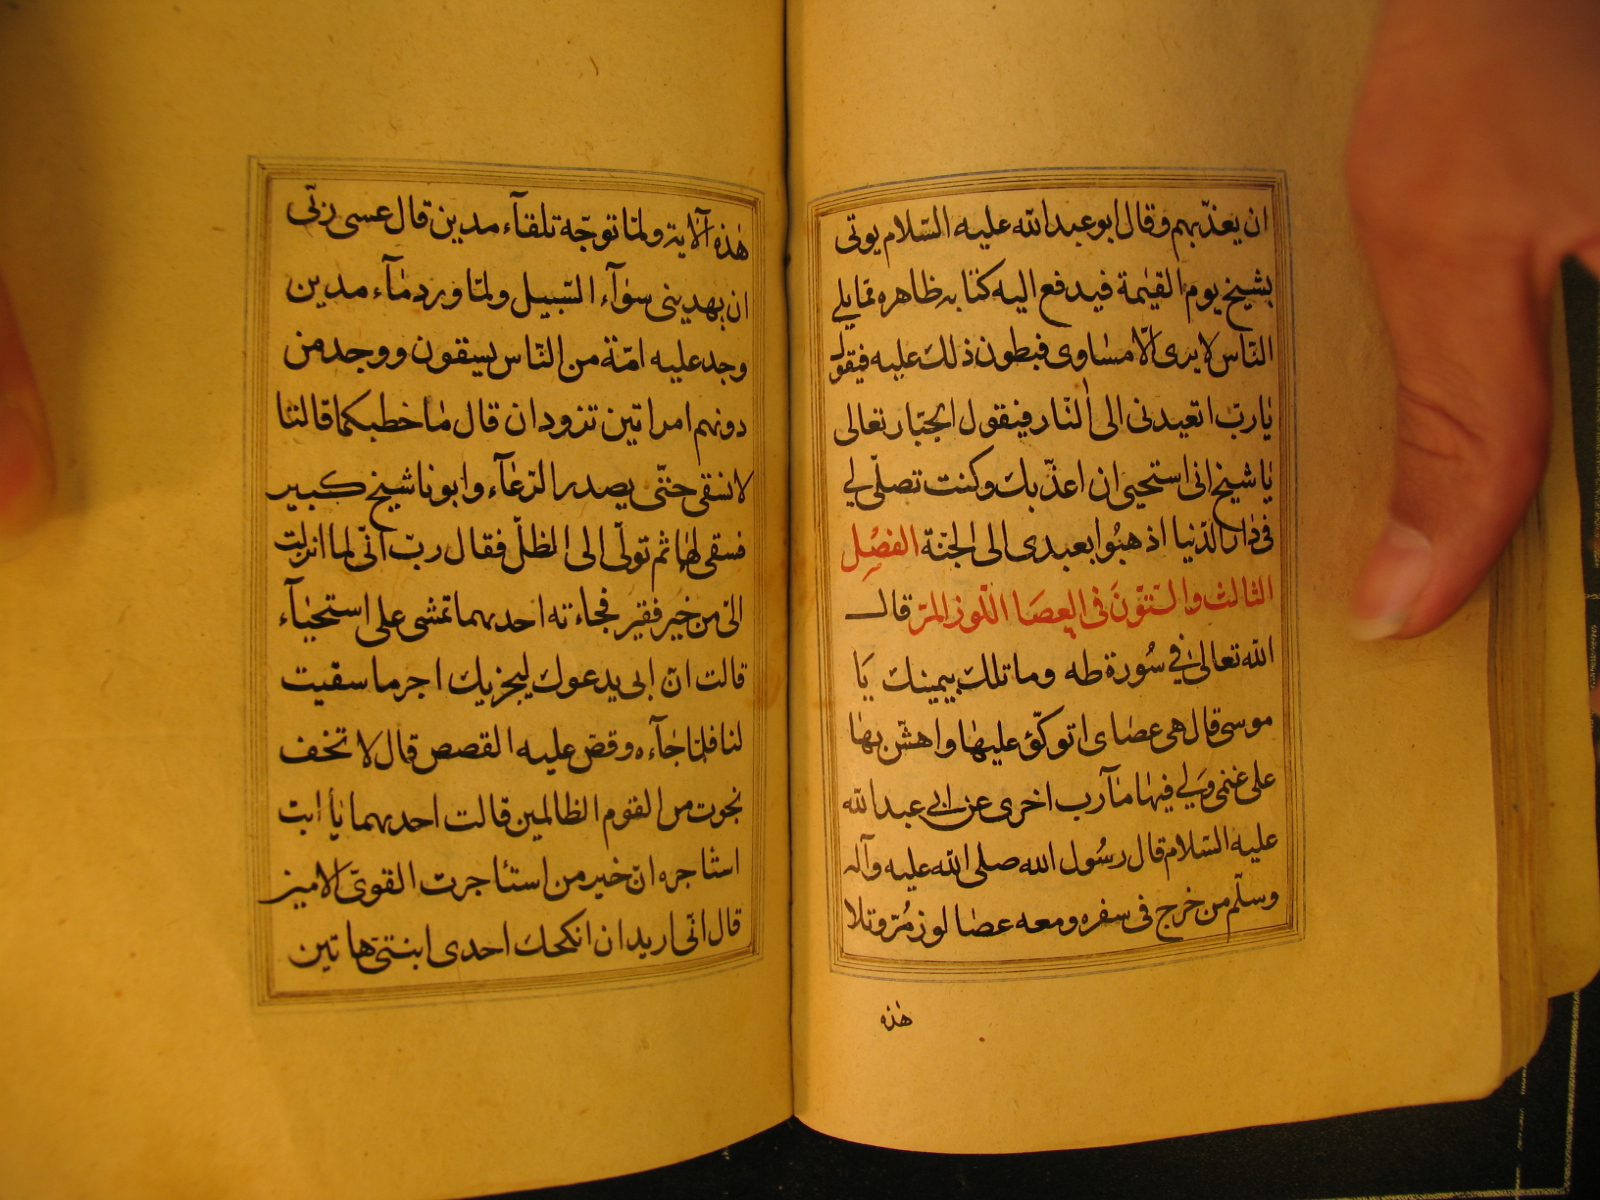 ان يعذّبهم وقال ابو عبد الله عليه السّلام يوتى
بشيخ يوم القيٰمة فيدفع اليه كتٰابه ظاهره ممّا يلي
النّاس لا يرى الّا مسٰاوى فيطون ذلك عليه فيقول
يٰا ربّ اتعيدنى الى النّار فيقول الجبّار تعالى
يٰا شيخ انى استحيى ان اعذّبك وكنت تصلّى لي
فى دٰار الدّنيا اذهبُوا بعبدى الى الجنّة الفصْل
الثالث والستّونَ فى العصَا اللّوز المرّ قال
الله تعالىٰ في سُورة طه وما تلك بيمينك يَا
موسى قال هى عصٰاى اتوكّؤ عليهٰا واهشّ بهٰا
على غنمى وَلي فيهٰا مٰآرب اخرى عن ابي عبد الله
عليه السّلام قال رسُول الله صلى الله عليه وآله
وسلّم من خرج فى سفره ومعه عصٰا لوز مُرّ وتلا
هٰذه
هٰذه الٓاية ولمّا توجّه تلقآء مدين قال عسى ربّى
ان يهدينى سوٰآء السّبيل ولمّا ورد مٰآء مدين
وجد عليه امّة من النّاس يسقون ووجد من
دونهم امراتين تزودان قال مٰا خطبكما قالتا
لا نسقى حتّى يصدر الرّعٰآء وابونا شيخ كبير
فسقى لهٰا ثم تولّى الى الظلّ فقال ربّ انّى لما انزلت
الىّ من خير فقير فجاءته احديهما تمشى على استحيٰآء
قالت انّ ابى يدعوك ليجزيك اجر ما سقيت
لنا فلمّا جٰآءه وقصّ عليه القصص قال لا تخف
نجوت من القوم الظالمين قالت احديهما يٰا ابت
استاجره انّ خير من استئاجرت القوىّ الامين
قال انّى اريد ان انكحك احدى ابنتىّ هاتين